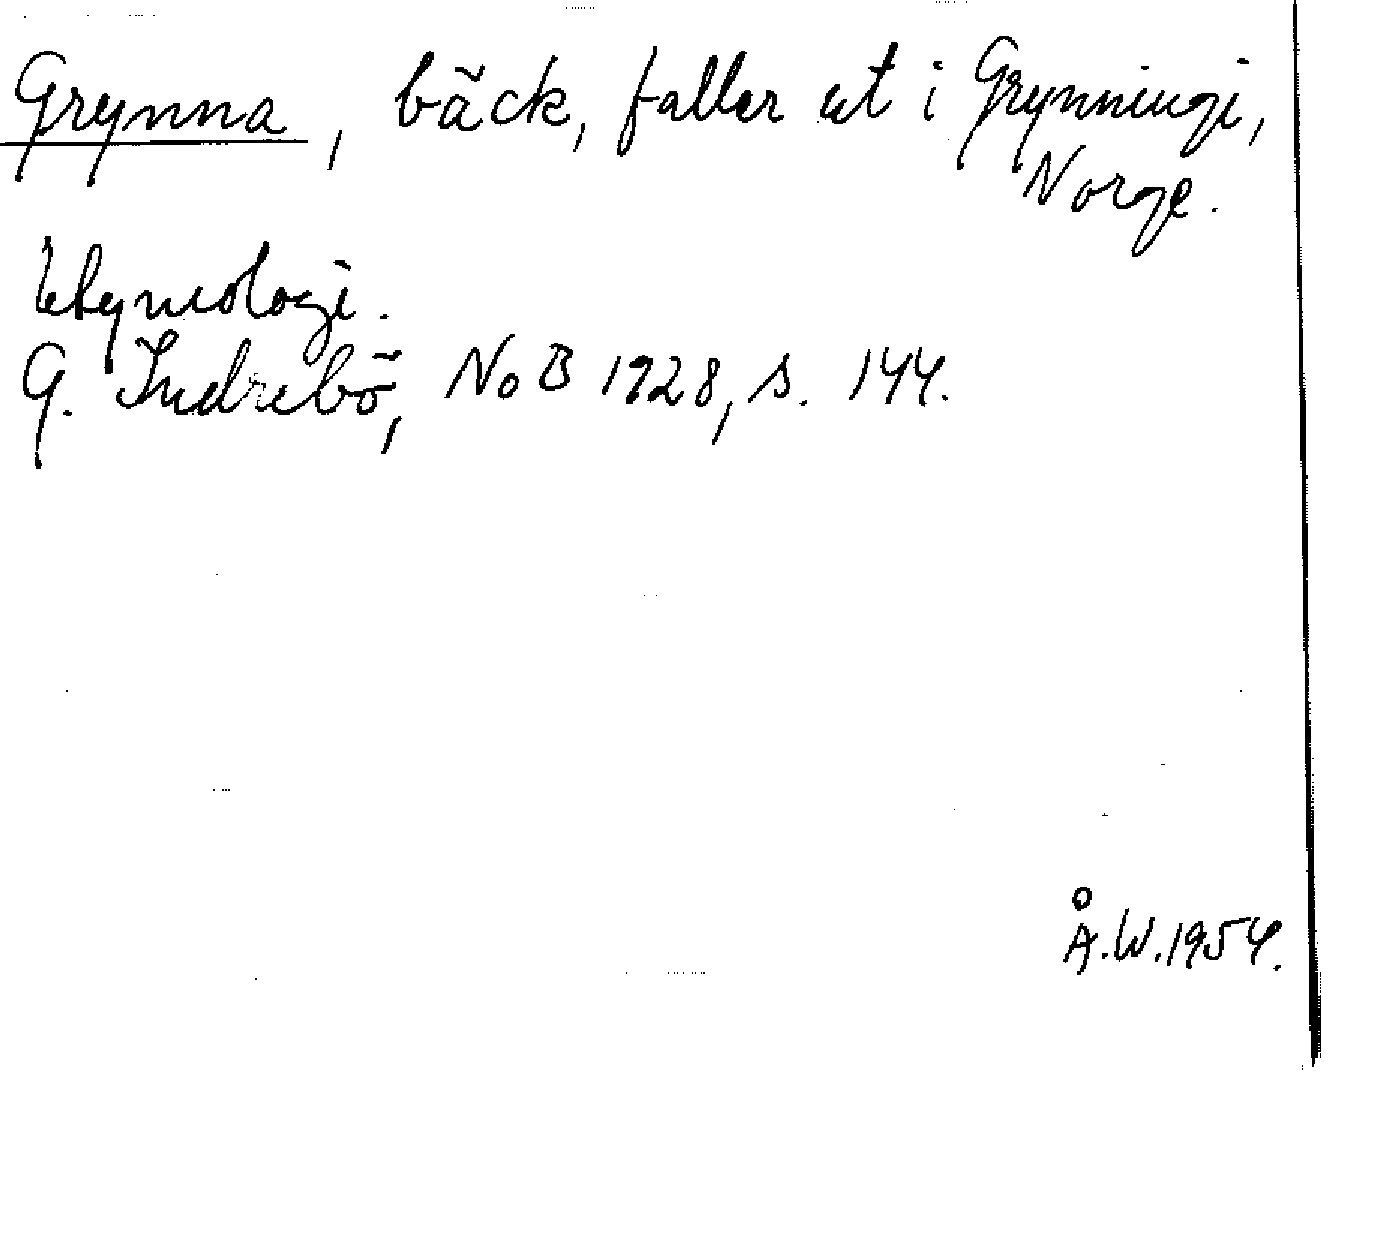 Grynna, bäck, faller ut i Grynningi,
Norge.
Etymologi.
G. Indrebö, NoB 1928, s. 144.
Å.W.1954.